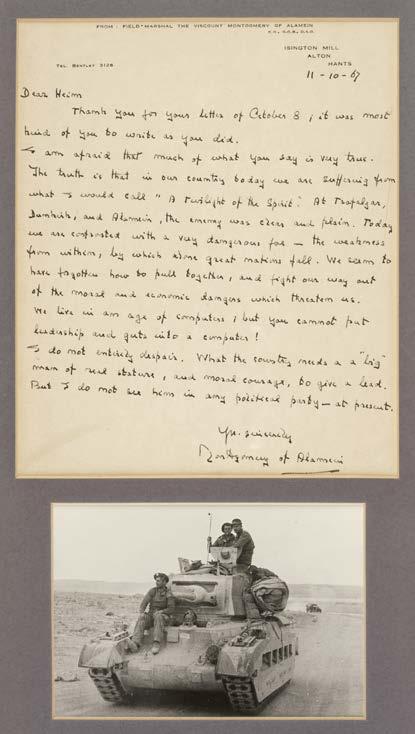 FROM: FIELD-MARSHAL THE VISCOUNT MONTGOMERY OF ALAMEIN
K.G., G.C.B., D.S.O.
ISINGTON MILL
ALTON
HANTS
TEL. BENTLEY 3126
11-10-67
Dear Heim
Thank you for your letter of October 8; it was most
kind of you to write as you did.
I am afraid that much of what you say is very true.
The truth is that in our country today we are suffering from
what I would call "A Twilight of the Spirit". At Trafalgar,
Dunkirk, and Alamein, the enemy was clear and plain. Today
we are confronted with a very dangerous foe — the weakness
from within, by which alone great nations fall. We seem to
have forgotten how to pull together, and fight our way out
of the moral and economic dangers which threaten us.
We live in an age of computers; but you cannot put
leadership and guts into a computer!
I do not entirely despair. What the country needs is a "big"
man of real stature, and moral courage, to give a lead.
But I do not see him in any political party — at present.
Yrs. sincerely
Montgomery of Alamein